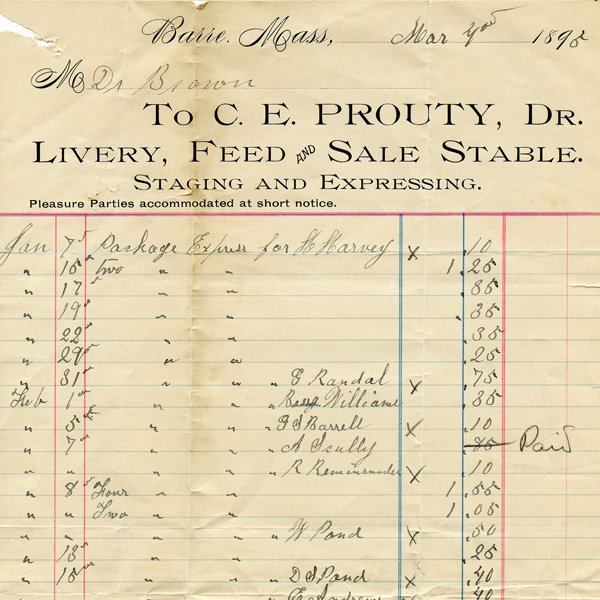 Barre, Mass, Mar 189
M Dr Brown
To C. E. PROUTY, DR.
LIVERY, FEED AND SALE STABLE.
STAGING AND EXPRESSING.
Pleasure Parties accommodated at short notice.
Jan 7 Package Express for H Harvey X .10
" 15 two " " 1.25
" 17 " " .35
" 19 " " .35
" 22 " " .35
" 29 " " .25
" 31 " " " E Randal X .75
Feb 1 " " " Williams .35
" 5 " " " Barrell X .10
" 7 " " " A Scully .85 Paid
" " " " " R X .10
" 8 Four " " 1.55
" " Two " " 1.05
" " " " " W Pond X .50
" 13 " " .25
" 15 " " " D S Pond X .40
" " " " Andrew .40